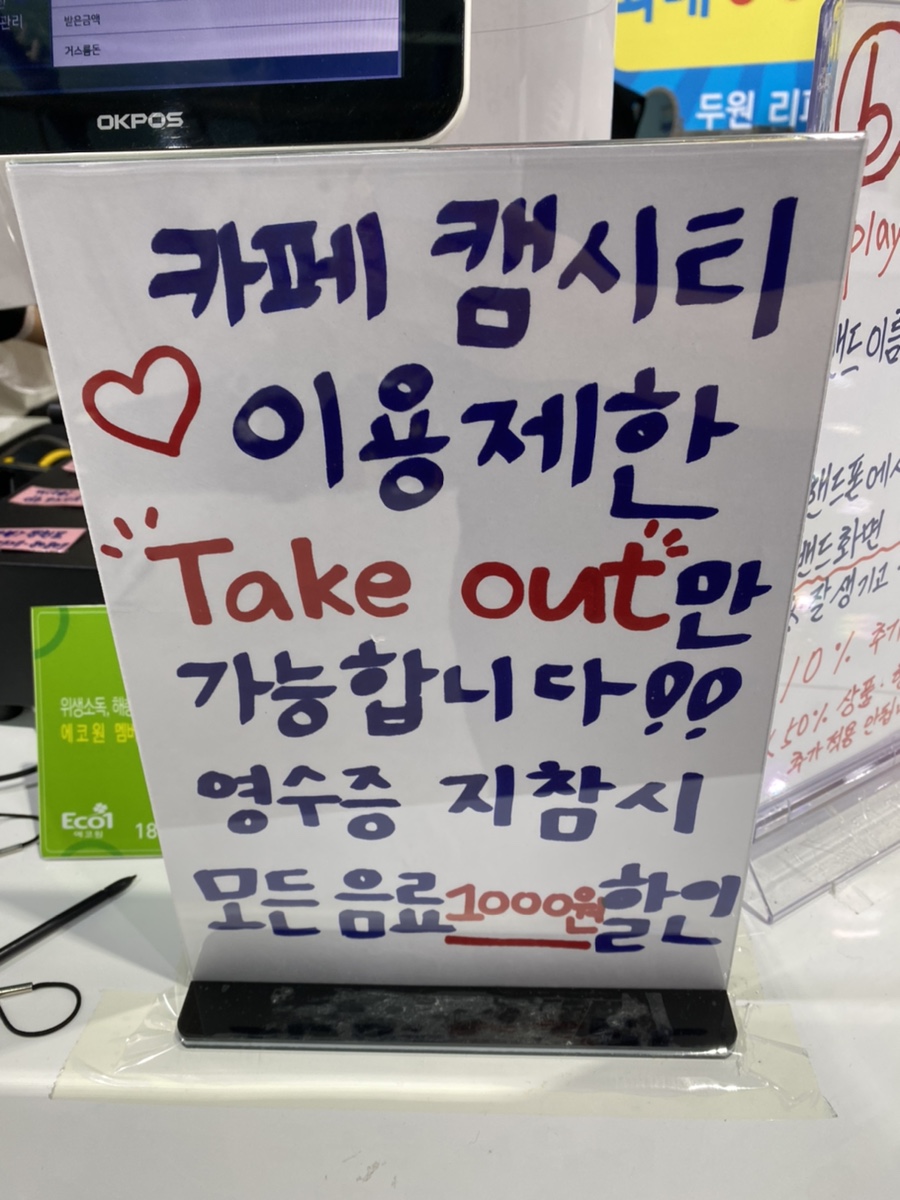 관리
받은금액
거스름돈
OKPOS
두원 리
카페 캠시티
♡ 이용제한
"Take out"만
가능합니다!!
영수증 지참시
모든 음료 1000원 할인
위생소독, 해
에코원 멤버
Eco1
에코원
18
b
play
밴드 이름
핸드폰에서
밴드화면
잘생기고
10% 추가
50% 상품
추가 적용 안됩